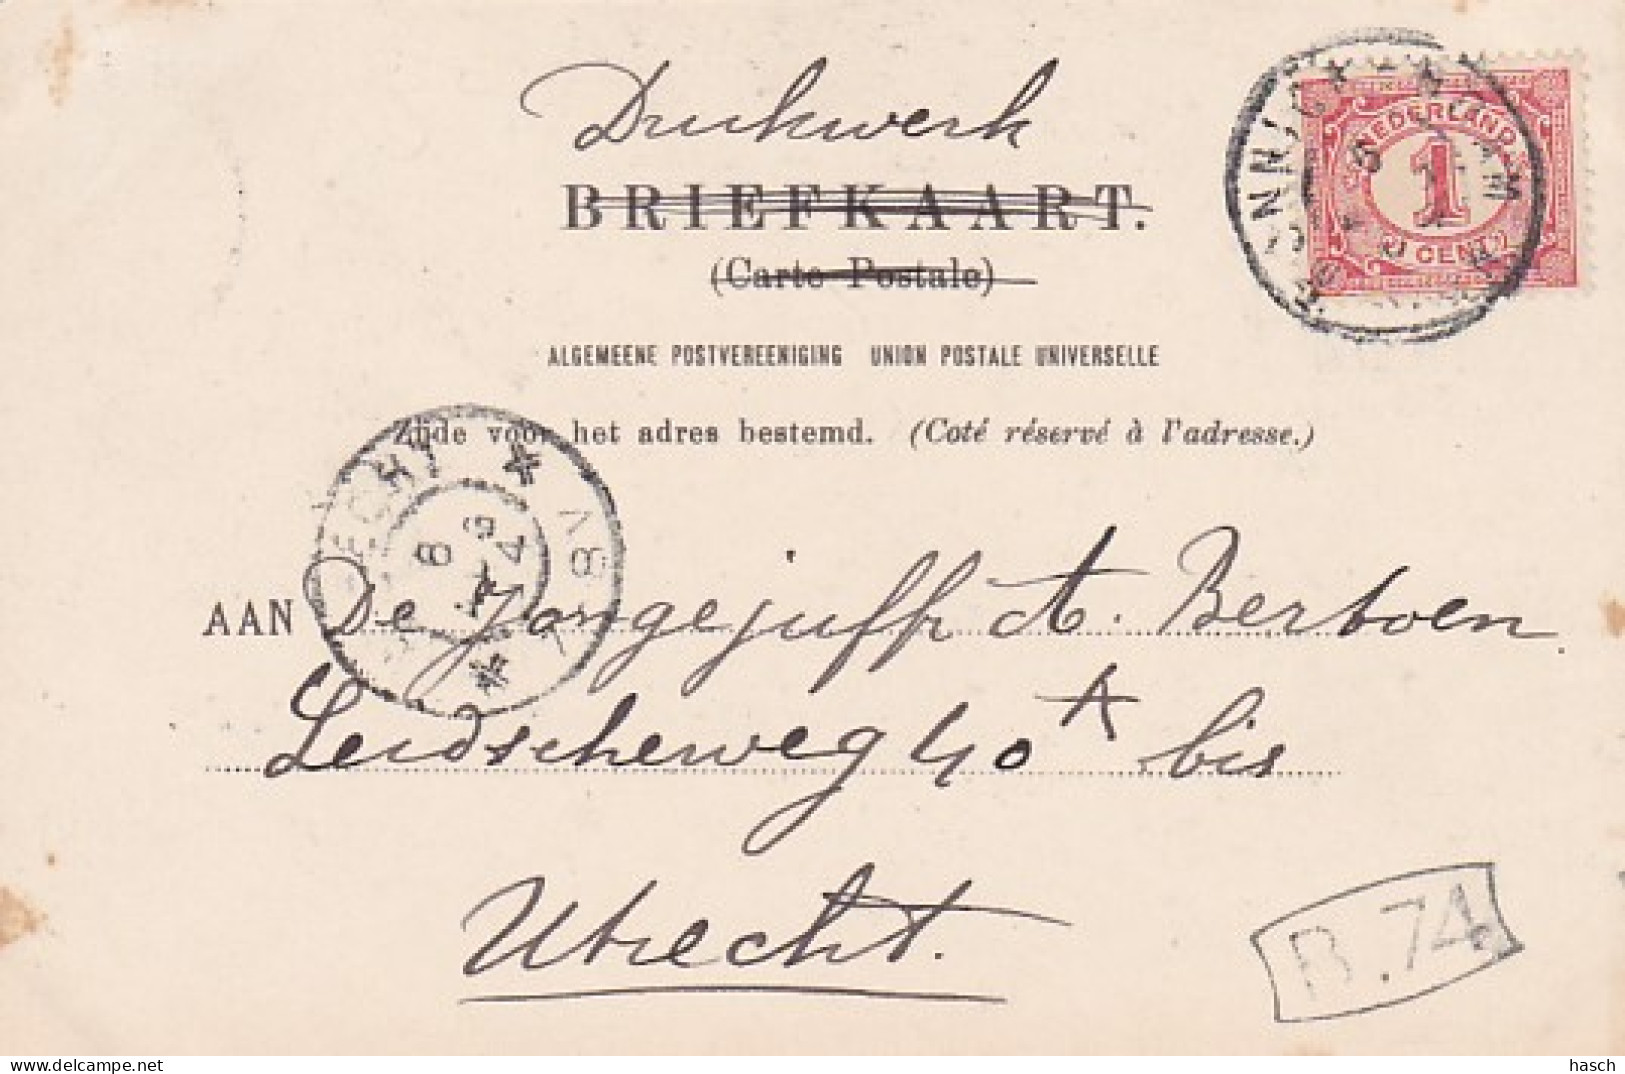 Drukwerk
BRIEFKAART.
(Carte Postale)
ALGEMEENE POSTVEREENIGING UNION POSTALE UNIVERSELLE
Zijde voor het adres bestemd. (Coté réservé à l'adresse.)
NEDERLAND
1
CENT
AAN De Jongejuffr A. Berboen
Leidscheweg 40 A bis
Utrecht.
B.74
hasch